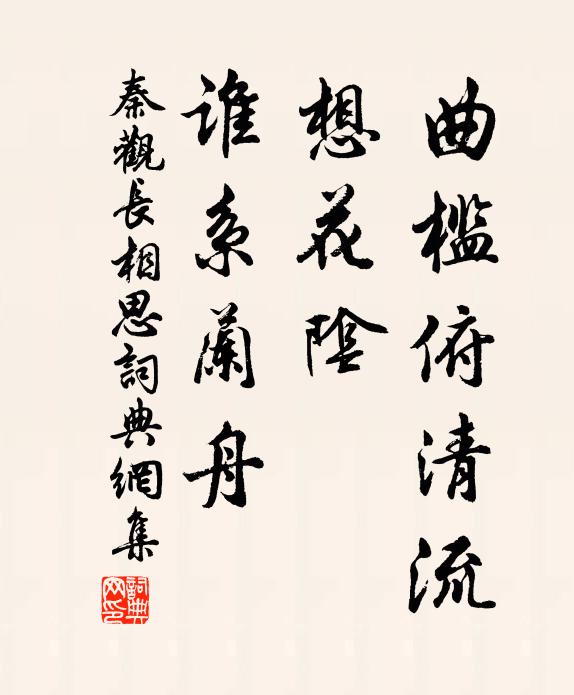 曲檻俯清流
想花陰
誰系蘭舟
秦觀長相思詞典網集
詞典網印